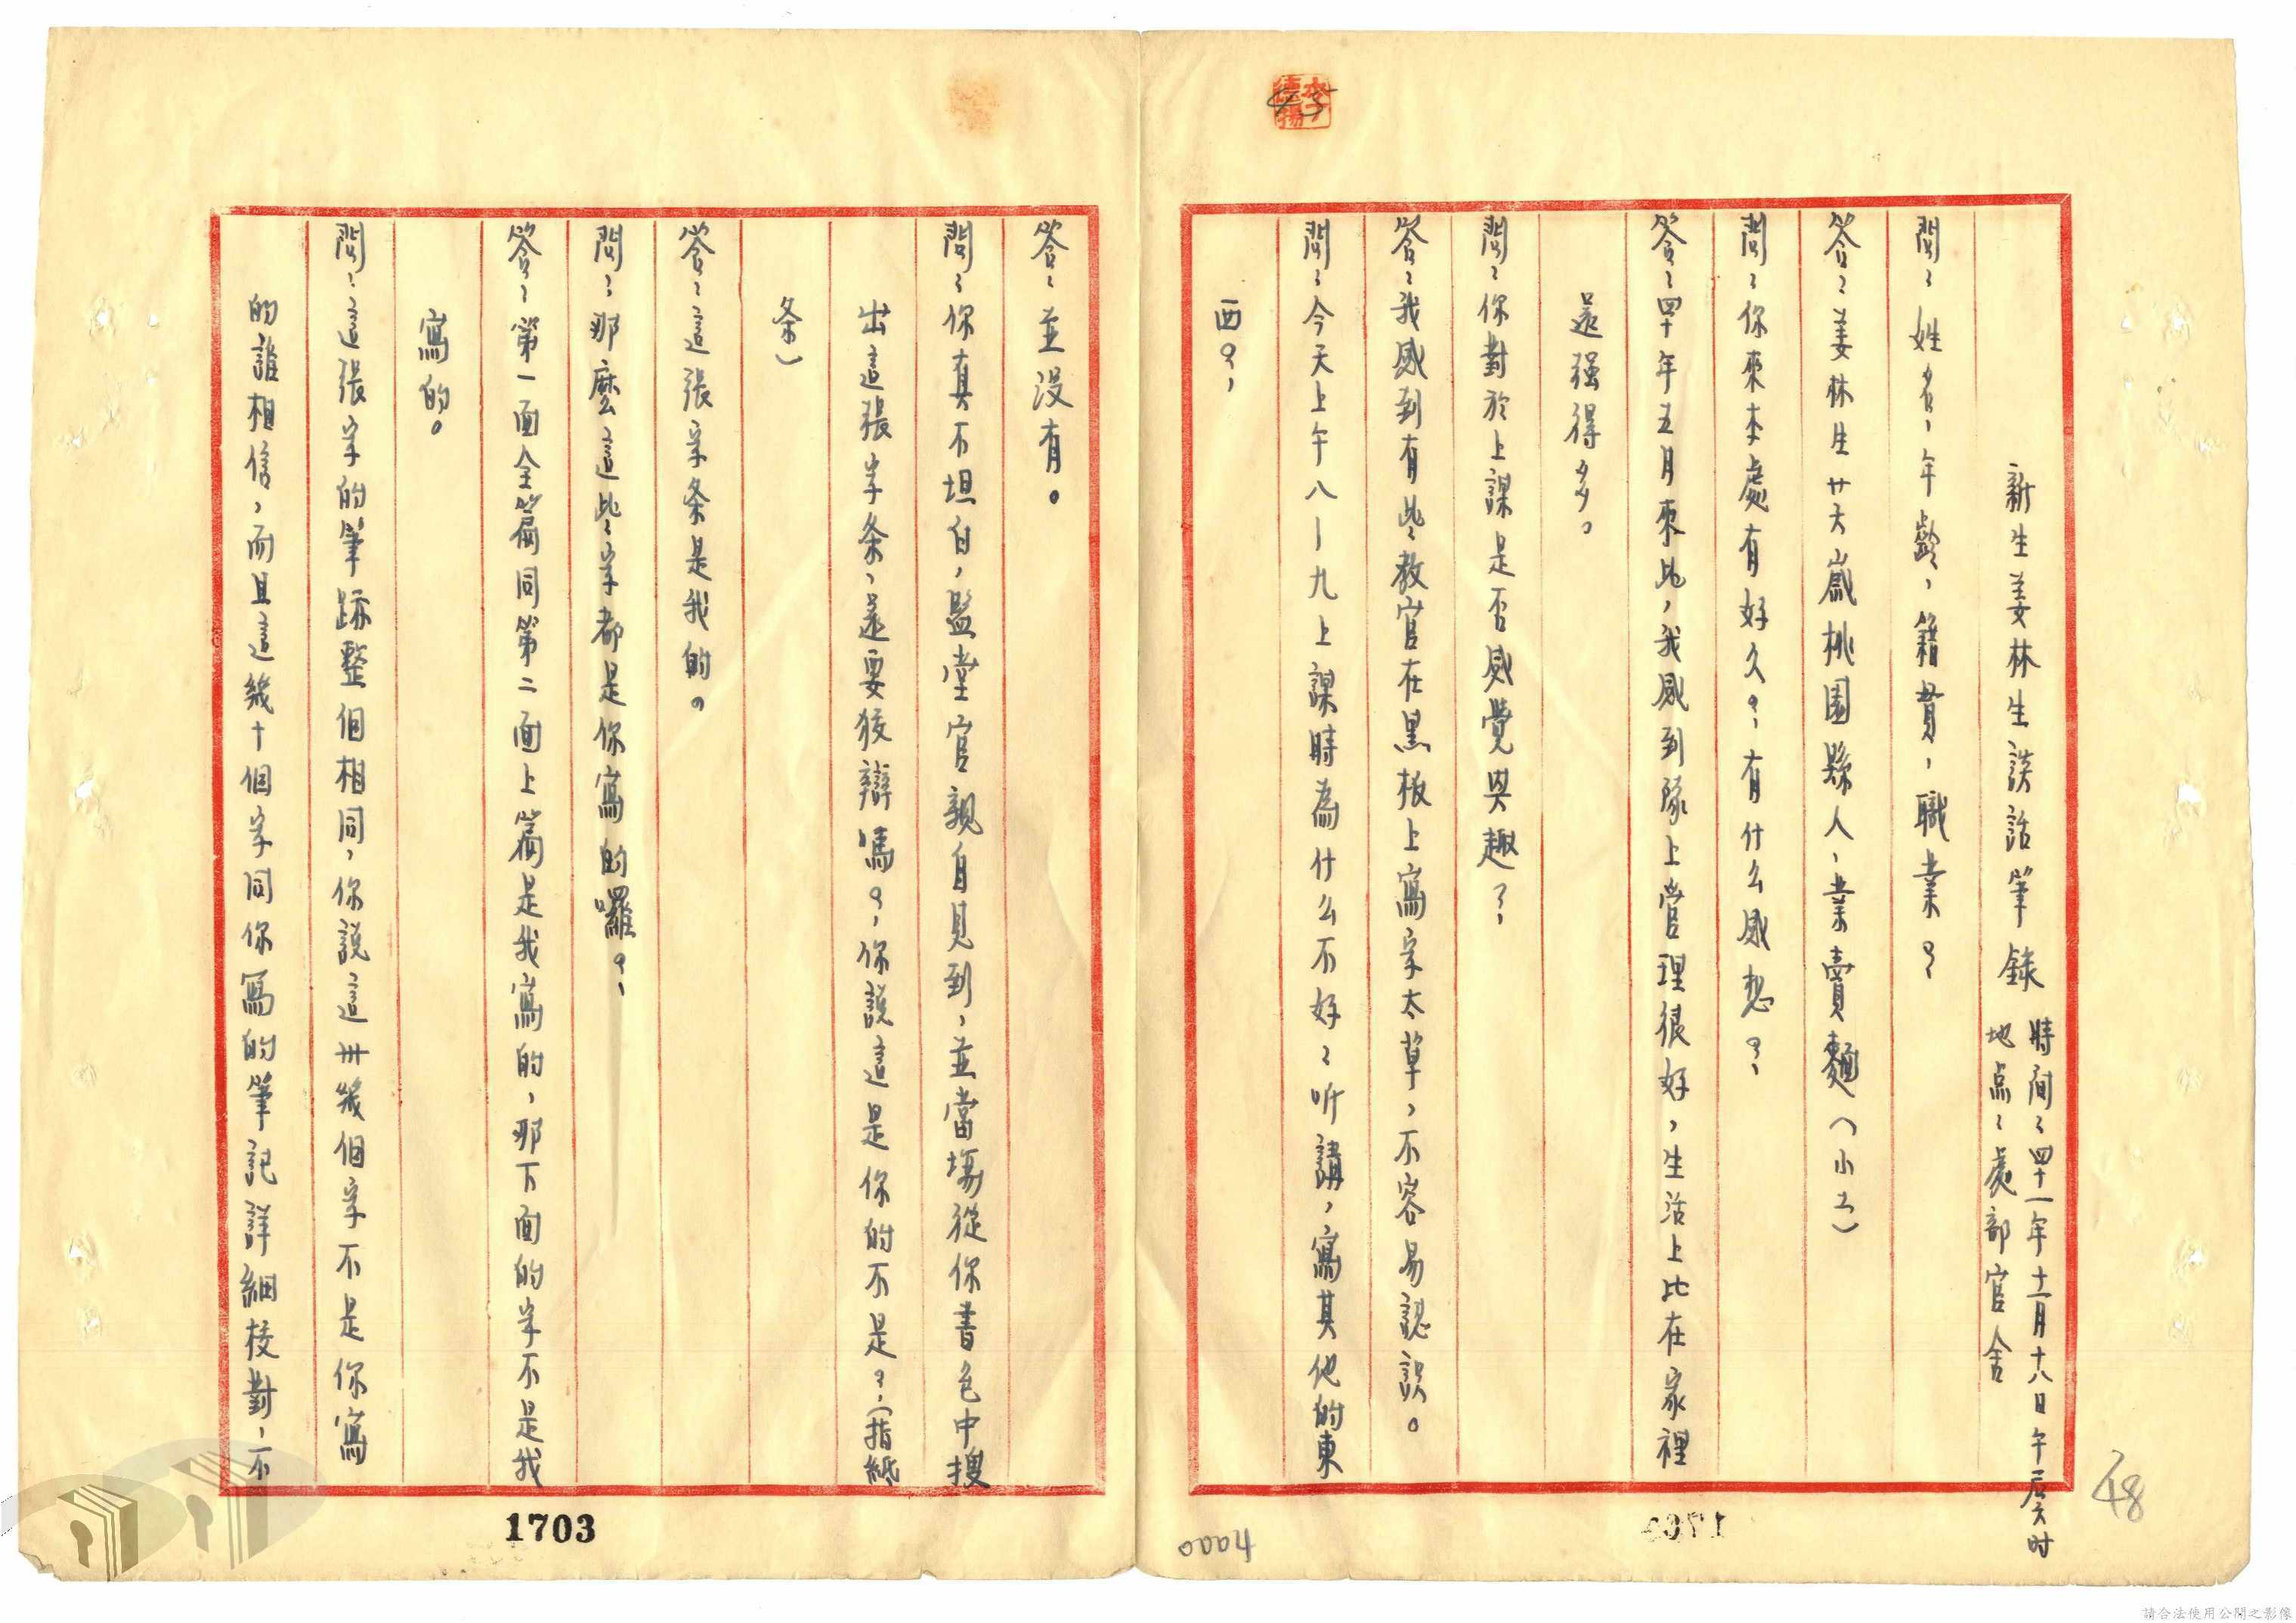 新生姜林生談話筆錄
時間：四十一年十二月十六日午后六时
地点：處部官舍
問：姓名，年齡，籍貫，職業？
答：姜林生廿六歲桃園縣人，業賣麵（小工）
問：你來本處有好久？，有什么感想？
答：四十年五月來此，我感到隊上管理很好，生活上比在家裡
還强得多。
問：你對於上課是否感覺興趣？
答：我感到有些教官在黑板上寫字太草，不容易認識。
問：今天上午八—九上課時為什么不好：听講，寫其他的東
西？，
答：並沒有。
問：你真不坦白，監堂官親自見到，並當場從你書包中搜
出這張字条，還要狡辯嗎？，你說這是你的不是？（指紙
条）
答：這張字条是我的。
問：那麼這些字都是你寫的囉？
答：第一面全篇同第二面上篇是我寫的，那下面的字不是我
寫的。
問：這張字的筆跡整個相同，你說這卅幾個字不是你寫
的誰相信，而且這幾十個字同你寫的筆記詳細校對，不
1703
0004
48
45
請合法使用公開之影像